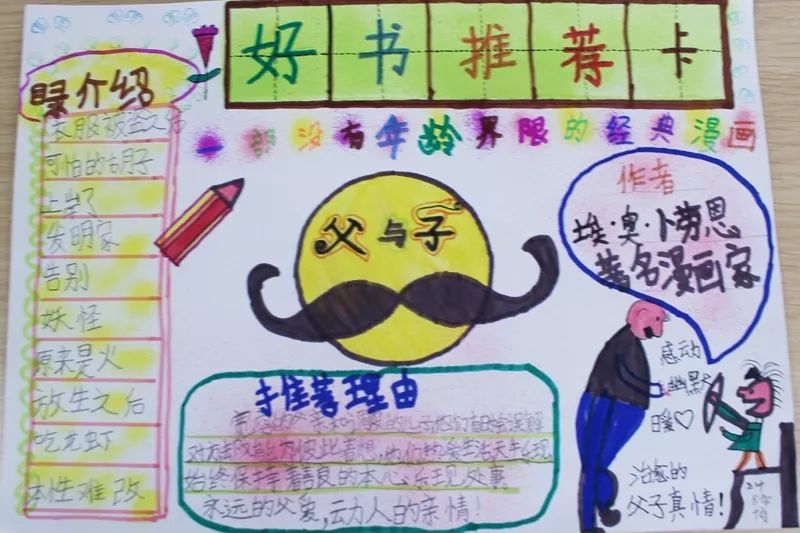 好书推荐卡
一部没有年龄界限的经典漫画
目录介绍
衣服被盗之后
可怕的胡子
上学了
发明家
告别
妖怪
原来是火
放生之后
吃龙虾
本性难改
父与子
作者
埃·奥·卜劳恩
著名漫画家
推荐理由
始终保持着善良的本心乐观处事
永远的父爱,动人的亲情!
感动
幽默
暖♡
治愈的
父子真情!